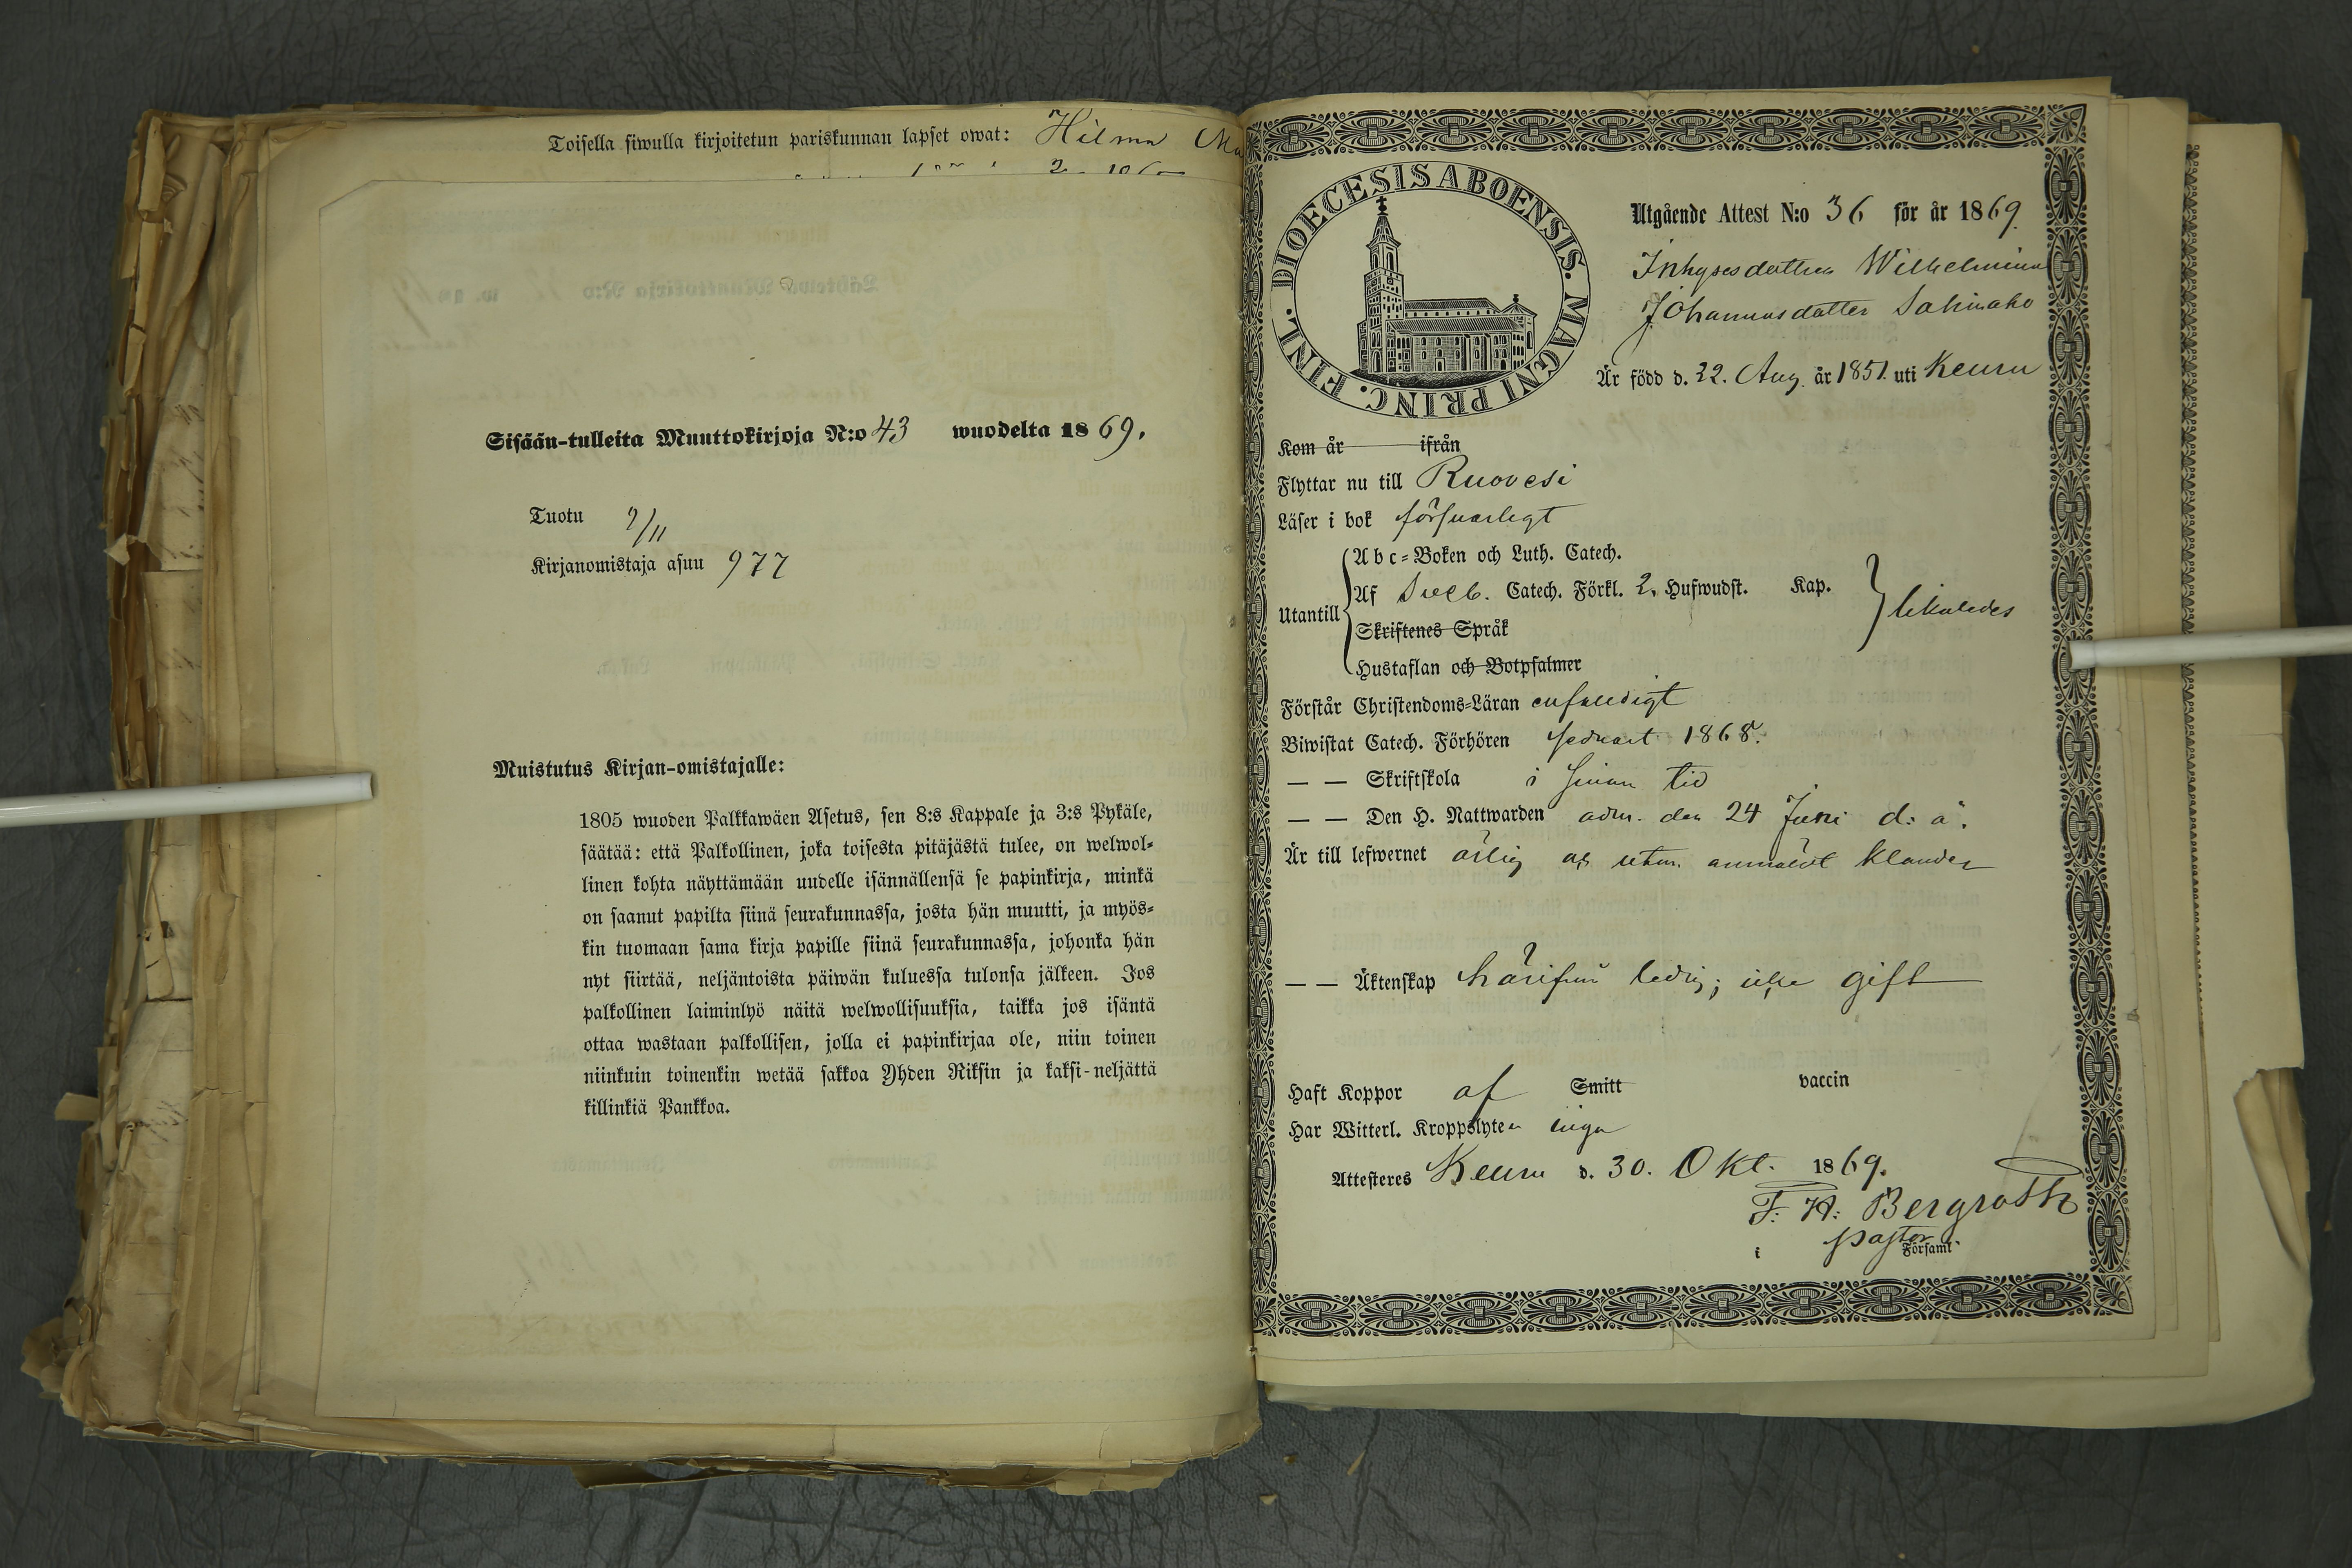 Toisella siwulla kirjoitetun pariskunnan lapset owat: Hilma Ma
Sisään-tulleita Muuttokirjoja N:o 43 wuodelta 1869.
Tuotu 9/11
Kirjanomistaja asuu 977
Muistutus Kirjan-omistajalle:
1805 wuoden Palkkawäen Asetus, sen 8:s Kappale ja 3:s Pykäle,
säätää: että Palkollinen, joka toisesta pitäjästä tulee, on welwol-
linen kohta näyttämään uudelle isännällensä se papinkirja, minkä
on saanut papilta siinä seurakunnassa, josta hän muutti, ja myös-
kin tuomaan sama kirja papille siinä seurakunnassa, johonka hän
nyt siirtää, neljäntoista päiwän kuluessa tulonsa jälkeen. Jos
palkollinen laiminlyö näitä welwollisuuksia, taikka jos isäntä
ottaa wastaan palkollisen, jolla ei papinkirjaa ole, niin toinen
niinkuin toinenkin wetää sakkoa Yhden Riksin ja kaksi-neljättä
killinkiä Pankkoa.
DIOECESIS ABOENSIS. MAGNI PRINC. FINL.
Utgående Attest N:o 36 för år 1869.
Inhysesdottren Wilhelmina
Johannesdotter Sahinaho
Är född d. 22. Aug. år 1851. uti Keuru
Kom år ifrån
Flyttar nu till Ruovesi
Läser i bok försvarligt
Utantill
Abc-Boken och Luth. Catech.
Af Sveb. Catech. Förkl. 2. Hufwudst. Kap.
Skriftenes Språk
Hustaflan och Botpsalmer
likaledes
Förstår Christendoms-Läran enfaldigt
Biwistat Catech. Förhören sednast 1868.
— — Skriftskola i sinom tid
— — Den H. Nattwarden adm. den 24 Juni d: å.
Är till lefwernet ärlig och utan anmäldt klander
— — Äktenskap härifrån ledig; icke gift
Haft Koppor af Smitt vaccin
Har Witterl. Kroppslyten inga
Attesteres Keuru d. 30. Okt. 1869.
F: H: Bergroth
pastor
i Församl.